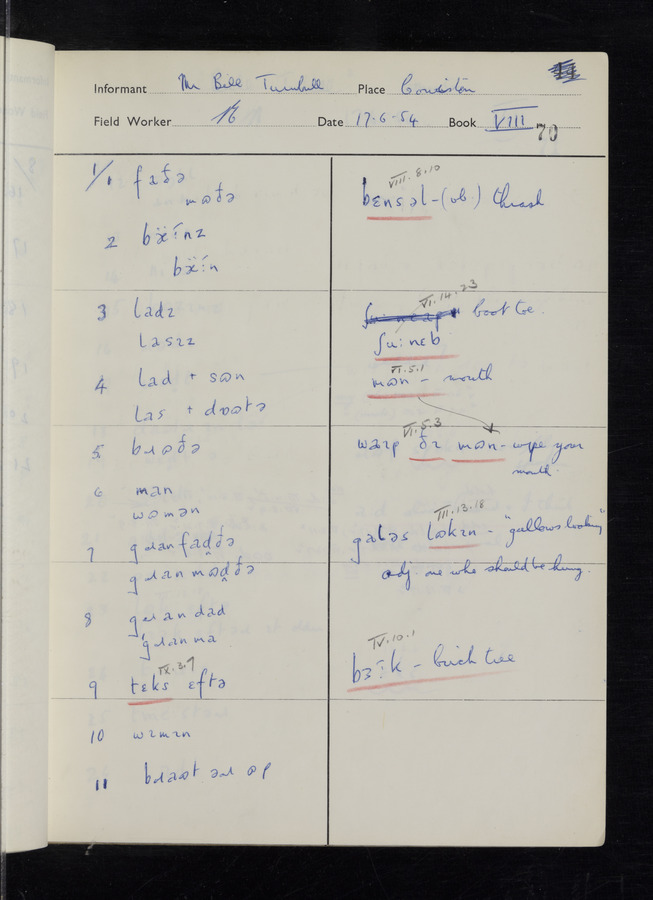 Informant Mr Bill Turnbull Place Coniston
Field Worker Date 17-6-54 Book VIII
70
1/1 faðə
mɷðə
2
3 ladz
4 lad + sɷn
las + dɷətə
5 bɹɷðə
6 man
wɷmən
7 gɹanfad̪ðə
gɹanmɷd̪ðə
8 gɹandad
gɹanma
IX.3.7
9 tɛks ɛftə
10 wɪmɪn
11 bɹaət əɹ ɷp
VIII.8.10
bɛnsəl - (vb.) thrash
VI.14.23
boot toe.
ʃu:nɛb
VI.5.1
mɷn - mouth
VI.5.3
ðɪ mɷn - wipe your
mouth
III.13.18
galəs lɷkɪn - "gallows looking"
adj. one who should be hung.
IV.10.1
bɜ:k - birch tree